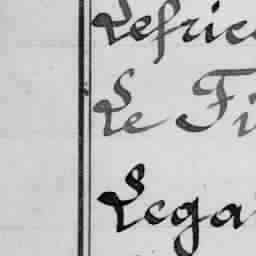 Lefric
Le Fi
Lega